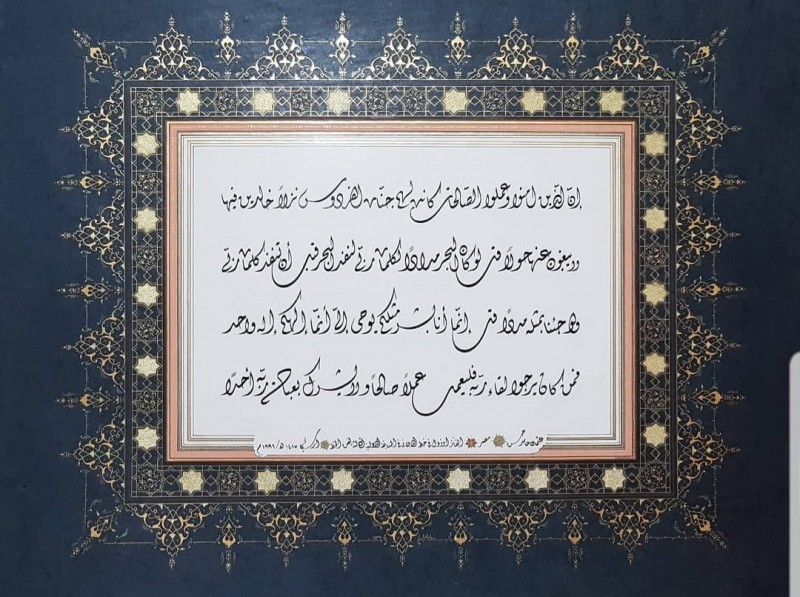 إن الذين امنوا وعملوا الصالحات كانت لهم جنات الفردوس نزلاً خالدين فيها
لا يبغون عنها حولاً قل لو كان البحر مدادًا لكلمات ربي لنفد البحر قبل أن تنفد كلمات ربي
ولو جئنا بمثله مددًا قل إنّما أنا بشر مثلكم يوحى إليّ أنّما إلهكم إله واحد
فمن كان يرجوا لقاء ربّه فليعمل عملاً صالحًا ولا يشرك بعبادة ربّه أحدًا
مصر ١٤١٧ هـ / ١٩٩٦م